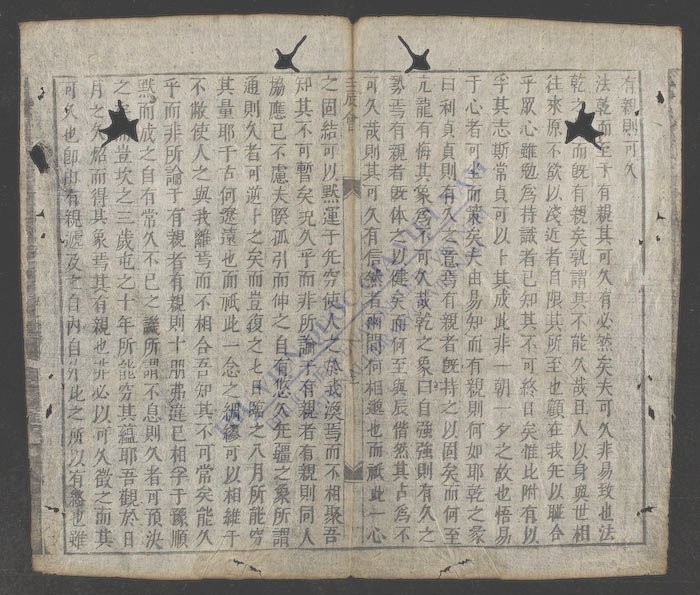 有親則可久
法乾而至于有親其可久有必然矣夫可久非易致也法
乾之而旣有親矣孰謂其不能久哉且人以身與世相
往來原不欲以淺近者自限其所至也顧在我先以難合
乎眾心雖勉爲持識者已知其不可終日矣惟比附有以
孚其志斯常貞可以卜其成此非一朝夕之故也悟易
于心者可 而策矣夫由易知而有親則何如耶乾之彖
曰利貞貞則有久之意焉有親者旣持之以固矣而何至
亢龍有悔其象爲不可久哉乾之象曰自強強則有久之
勢焉有親者旣体之以健矣而何至與辰偕然其占爲不
可久哉則其可久有信然者幽間何相 也而祇此一心
壬辰會
之固結可以黙運于无穷使人之於我渙焉而不相聚吾
知其不可暫矣況久乎而非所論于有親者有親則同人
協應已不慮夫睽孤引而伸之自有悠久无疆之象所謂
通則久者可逆卜之矣而豈復之七日臨之八月所能穷
其量耶千古何遼遠也而祇此一念之綢繆可以相維于
不敝使人之與我離焉而不相合吾知其不可常矣能久
乎而非所論于有親者有親則十朋弗違已相孚于豫順
黙而成之自有常久不已之 所謂不息則久者可預决
之 而豈坎之三歲屯之十年所能穷其蘊耶吾觀於日
月之久炤而得其象焉其有親也 必以可久徵之而其
可久也卽由有親 及之自内自外比之所以有 也雖